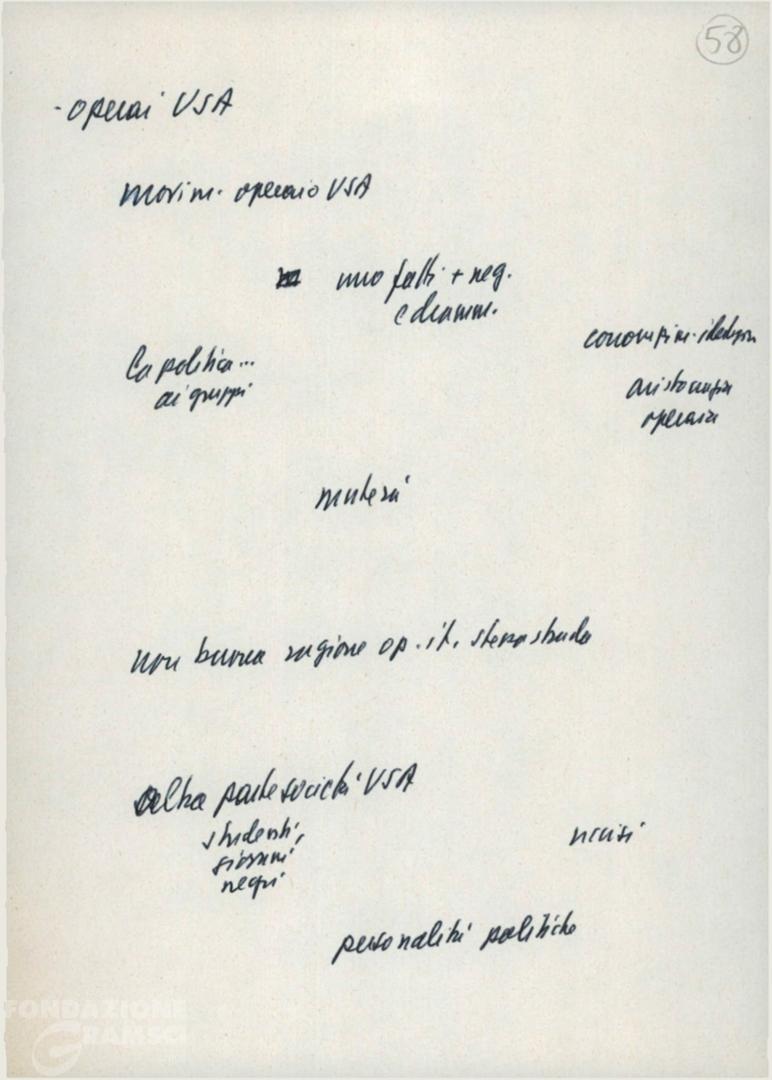 58
- operai USA
movim. operaio USA
uno fatti + neg.
e dramm.
corrompim. ideolog.
La politica...
ai gruppi
aristocrazia
operaia
muterà
non buona ragione op. it. stessa strada
altra parte società USA
studenti,
giovani
negri
crisi
personalità politiche
FONDAZIONE
GRAMSCI